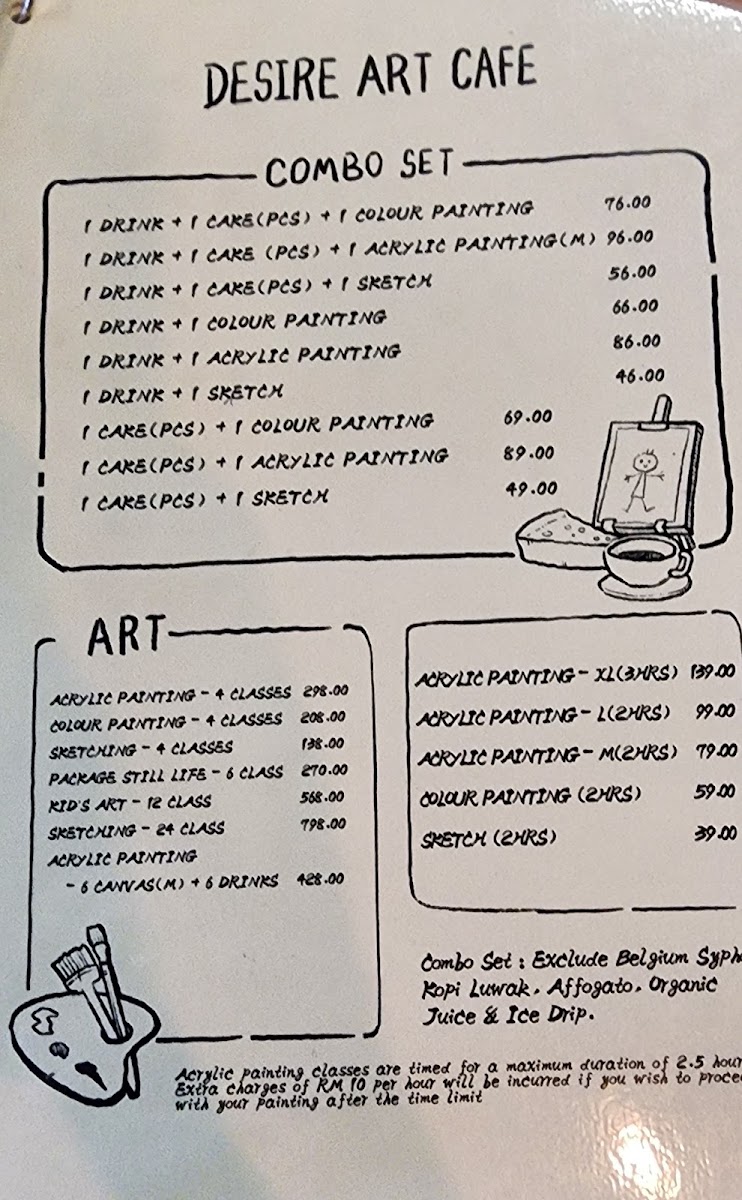 DESIRE ART CAFE
COMBO SET
1 DRINK + 1 CAKE(PCS) + 1 COLOUR PAINTING 76.00
1 DRINK + 1 CAKE (PCS) + 1 ACRYLIC PAINTING(M) 96.00
1 DRINK + 1 CAKE(PCS) + 1 SKETCH 56.00
1 DRINK + 1 COLOUR PAINTING 66.00
1 DRINK + 1 ACRYLIC PAINTING 86.00
1 DRINK + 1 SKETCH 46.00
1 CAKE(PCS) + 1 COLOUR PAINTING 69.00
1 CAKE(PCS) + 1 ACRYLIC PAINTING 89.00
1 CAKE(PCS) + 1 SKETCH 49.00
ART
ACRYLIC PAINTING - 4 CLASSES 298.00
COLOUR PAINTING - 4 CLASSES 208.00
SKETCHING - 4 CLASSES 138.00
PACKAGE STILL LIFE - 6 CLASS 270.00
KID'S ART - 12 CLASS 568.00
SKETCHING - 24 CLASS 798.00
ACRYLIC PAINTING
- 6 CANVAS(M) + 6 DRINKS 428.00
ACRYLIC PAINTING - XL(3HRS) 139.00
ACRYLIC PAINTING - L(2HRS) 99.00
ACRYLIC PAINTING - M(2HRS) 79.00
COLOUR PAINTING (2HRS) 59.00
SKETCH (2HRS) 39.00
Combo Set : Exclude Belgium Syph
Kopi Luwak, Affogato, Organic
Juice & Ice Drip.
Acrylic painting classes are timed for a maximum duration of 2.5 hour
Extra charges of RM 10 per hour will be incurred if you wish to procee
with your painting after the time limit